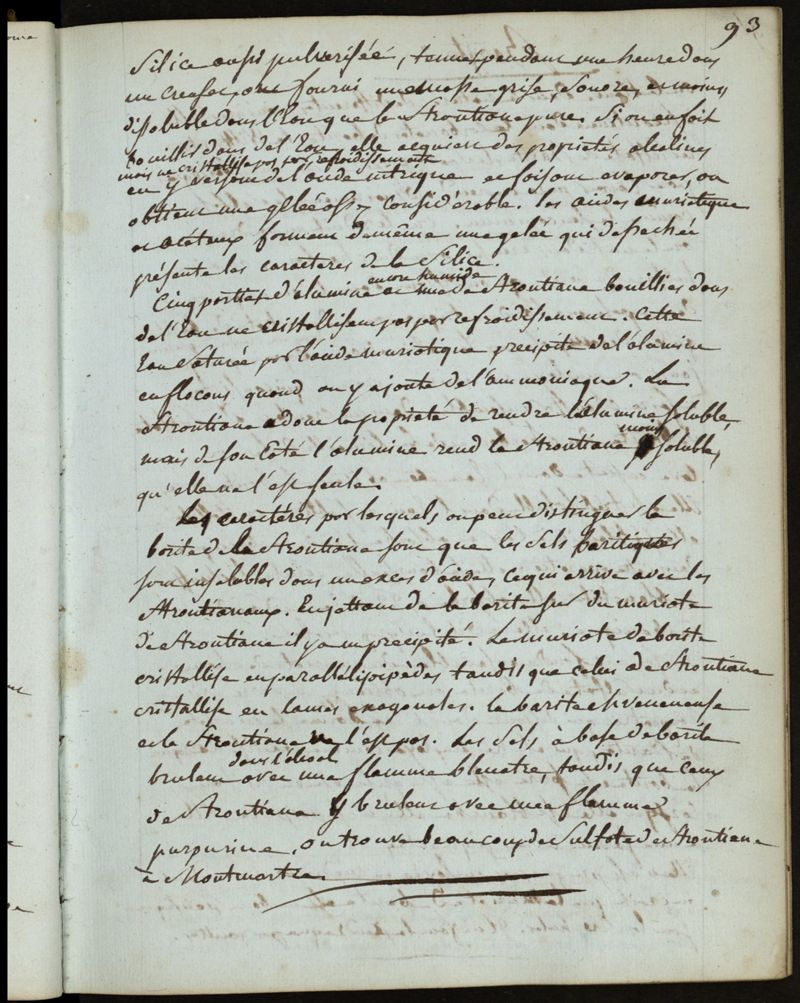 93
Silice aussi pulverisée, tenues pendant une heure dans
un creuset, ont fourni une masse grise, Sonore, et moins
dissoluble dans l'Eau que la Strontiane pure. Si on en fait
bouillir dans de l'Eau, elle acquiert des propriétés alcalines
mais ne cristallise pas par refroidissement
en y versant de l'acide nitrique et faisant evaporer, on
obtient une gelée assez considérable. les acides muriatique
et acéteux forment de même une gelée qui dessechée
présente les caracteres de la Silice.
encore humide
Cinq parties d'alumine et une de Strontiane bouillies dans
de l'Eau ne cristallisent pas par refroidissement. Cette
Eau saturée par l'acide muriatique precipite de l'alumine
en flocons quand on y ajoute de l'ammoniaque. La
Strontiane a donc la propriété de rendre l'alumine soluble,
moins
mais de son coté l'alumine rend la Strontiane soluble,
qu'elle ne l'est seule.
Les caractéres par lesquels on peut distinguer la
barite de la Strontiane sont que les Sels baritiques
sont insolubles dans un exces d'acide, ce qui arrive avec les
Strontianaux. En jettant de la barite sur du muriate
de Strontiane il y a un precipité. Le muriate de barite
cristallise en parallélipipèdes tandis que celui de Strontiane
cristallise en lames exagonales. la barite est veneneuse
et la Strontiane ne l'est pas. Les Sels à base de barite
dans l'alcool
brulent avec une flamme bleuatre, tandis que ceux
de Strontiane y brulent avec une flamme
purpurine. on trouve beaucoup de Sulfate de Strontiane
à Montmartre.